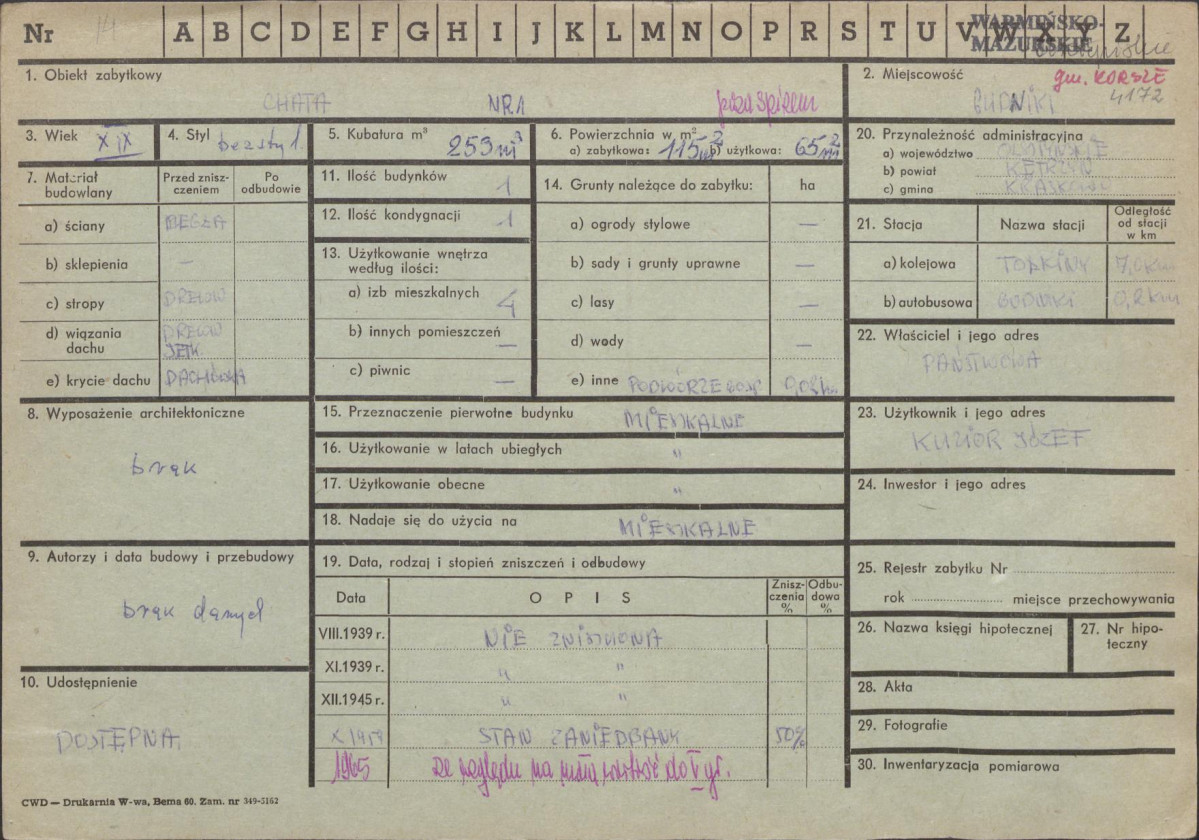 Nr 14 A B C D E F G H I J K L M N O P R S T U V W X Y Z
WARMIŃSKO-
MAZURSKIE
1. Obiekt zabytkowy
CHATA NR1 poza spisem
2. Miejscowość
gm. KORSZE
4172
BUDNIKI
3. Wiek XIX
4. Styl bezstyl.
5. Kubatura m³
253 m³
6. Powierzchnia w m²
a) zabytkowa: 115 m² b) użytkowa: 65 m²
7. Materiał budowlany
Przed zniszczeniem
Po odbudowie
a) ściany CEGŁA
b) sklepienia —
c) stropy DREWN
d) wiązania dachu DREWN
JĘTK.
e) krycie dachu DACHÓWKA
8. Wyposażenie architektoniczne
brak
9. Autorzy i data budowy i przebudowy
brak danych
10. Udostępnienie
DOSTĘPNA
11. Ilość budynków 1
12. Ilość kondygnacji 1
13. Użytkowanie wnętrza według ilości:
a) izb mieszkalnych 4
b) innych pomieszczeń —
c) piwnic —
14. Grunty należące do zabytku: ha
a) ogrody stylowe —
b) sady i grunty uprawne —
c) lasy —
d) wody —
e) inne PODWÓRZE GOSP
15. Przeznaczenie pierwotne budynku MIESZKALNE
16. Użytkowanie w latach ubiegłych "
17. Użytkowanie obecne "
18. Nadaje się do użycia na MIESZKALNE
19. Data, rodzaj i stopień zniszczeń i odbudowy
Data OPIS Zniszczenia % Odbudowa %
VIII.1939 r. NIE ZNISZCZONA
XI.1939 r. " "
XII.1945 r. " "
X 1959 STAN ZANIEDBANY 50%
1965 ze względu na małą wartość do V gr.
20. Przynależność administracyjna
a) województwo OLSZTYŃSKIE
b) powiat KĘTRZYN
c) gmina KRASKOWO
21. Stacja Nazwa stacji Odległość od stacji w km
a) kolejowa TOLKINY 7,0 km
b) autobusowa BUDNIKI 0,2 km
22. Właściciel i jego adres
PAŃSTWOWA
23. Użytkownik i jego adres
KUZIOR JÓZEF
24. Inwestor i jego adres
25. Rejestr zabytku Nr
rok miejsce przechowywania
26. Nazwa księgi hipotecznej
27. Nr hipoteczny
28. Akta
29. Fotografie
30. Inwentaryzacja pomiarowa
CWD — Drukarnia W-wa, Bema 60. Zam. nr 349-5162